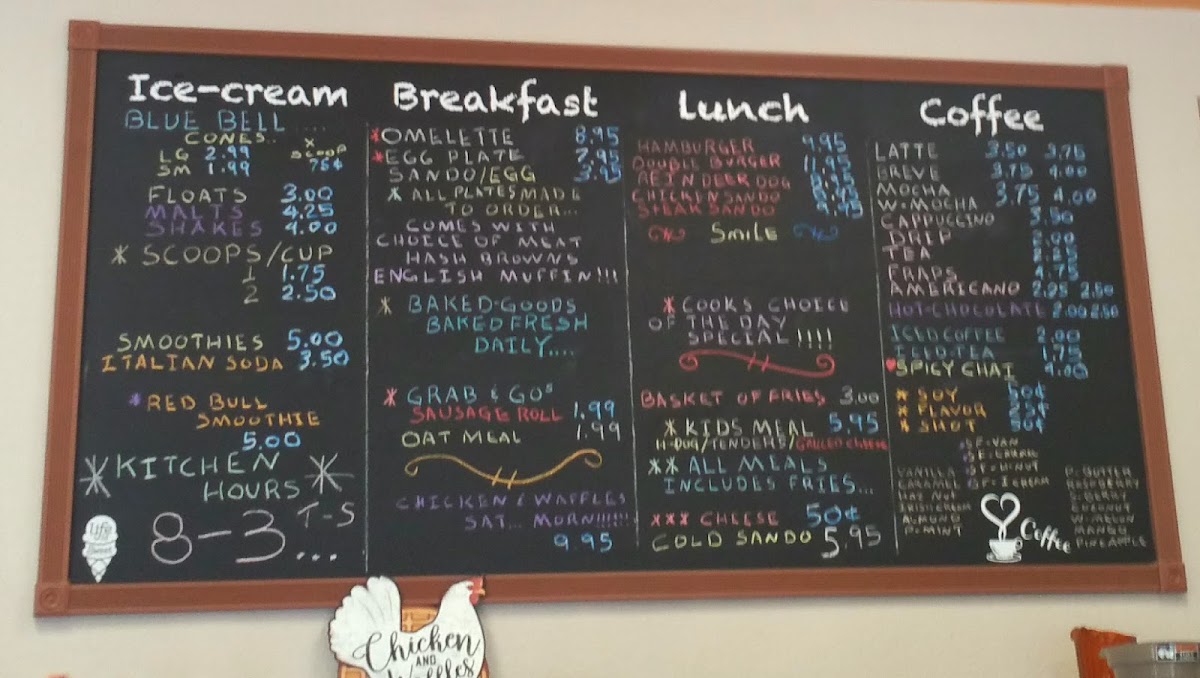 Ice-cream
BLUE BELL ...
CONES..
LG 2.99
SM 1.99
X
SCOOP
75¢
FLOATS 3.00
MALTS 4.25
SHAKES 4.00
* SCOOPS/CUP
1 1.75
2 2.50
SMOOTHIES 5.00
ITALIAN SODA 3.50
*RED BULL
SMOOTHIE
5.00
*KITCHEN *
HOURS
8-3 T-S
...
life
is
Sweet
Breakfast
*OMELETTE 8.95
*EGG PLATE 7.95
SANDO/EGG 3.95
* ALL PLATES MADE
TO ORDER...
COMES WITH
CHOICE OF MEAT
HASH BROWNS
ENGLISH MUFFIN!!!
* BAKED-GOODS
BAKED FRESH
DAILY....
* GRAB & GOS
SAUSAGE ROLL 1.99
OAT MEAL 1.99
CHICKEN & WAFFLES
SAT... MORN!!!!!!
9.95
Lunch
HAMBURGER 9.95
DOUBLE BURGER 11.95
REINDEER DOG
CHICKEN SANDO
STEAK SANDO 9.95
SMILE
* COOKS CHOICE
OF THE DAY
SPECIAL !!!!
BASKET OF FRIES 3.00
* KIDS MEAL 5.95
H-DOG/TENDERS/GRILLED CHEESE
** ALL MEALS
INCLUDES FRIES...
*** CHEESE 50¢
COLD SANDO 5.95
Coffee
LATTE 3.50 3.75
BREVE 3.75 4.00
MOCHA 3.75 4.00
W-MOCHA
CAPPUCCINO 3.50
DRIP 2.00
TEA 2.25
FRAPS 4.75
AMERICANO 2.25 2.50
HOT-CHOCOLATE 2.00 2.50
ICED COFFEE 2.00
ICED TEA 1.75
SPICY CHAI 4.00
* SOY 50¢
* FLAVOR 25¢
* SHOT 50¢
SF-VAN
VANILLA
CARAMEL
HAZ NUT
IRISH CREAM
ALMOND
P-MINT
B-BUTTER
RASPBERRY
S-BERRY
COCONUT
W-MELON
MANGO
PINEAPPLE
Coffee
Chicken
AND
Waffles